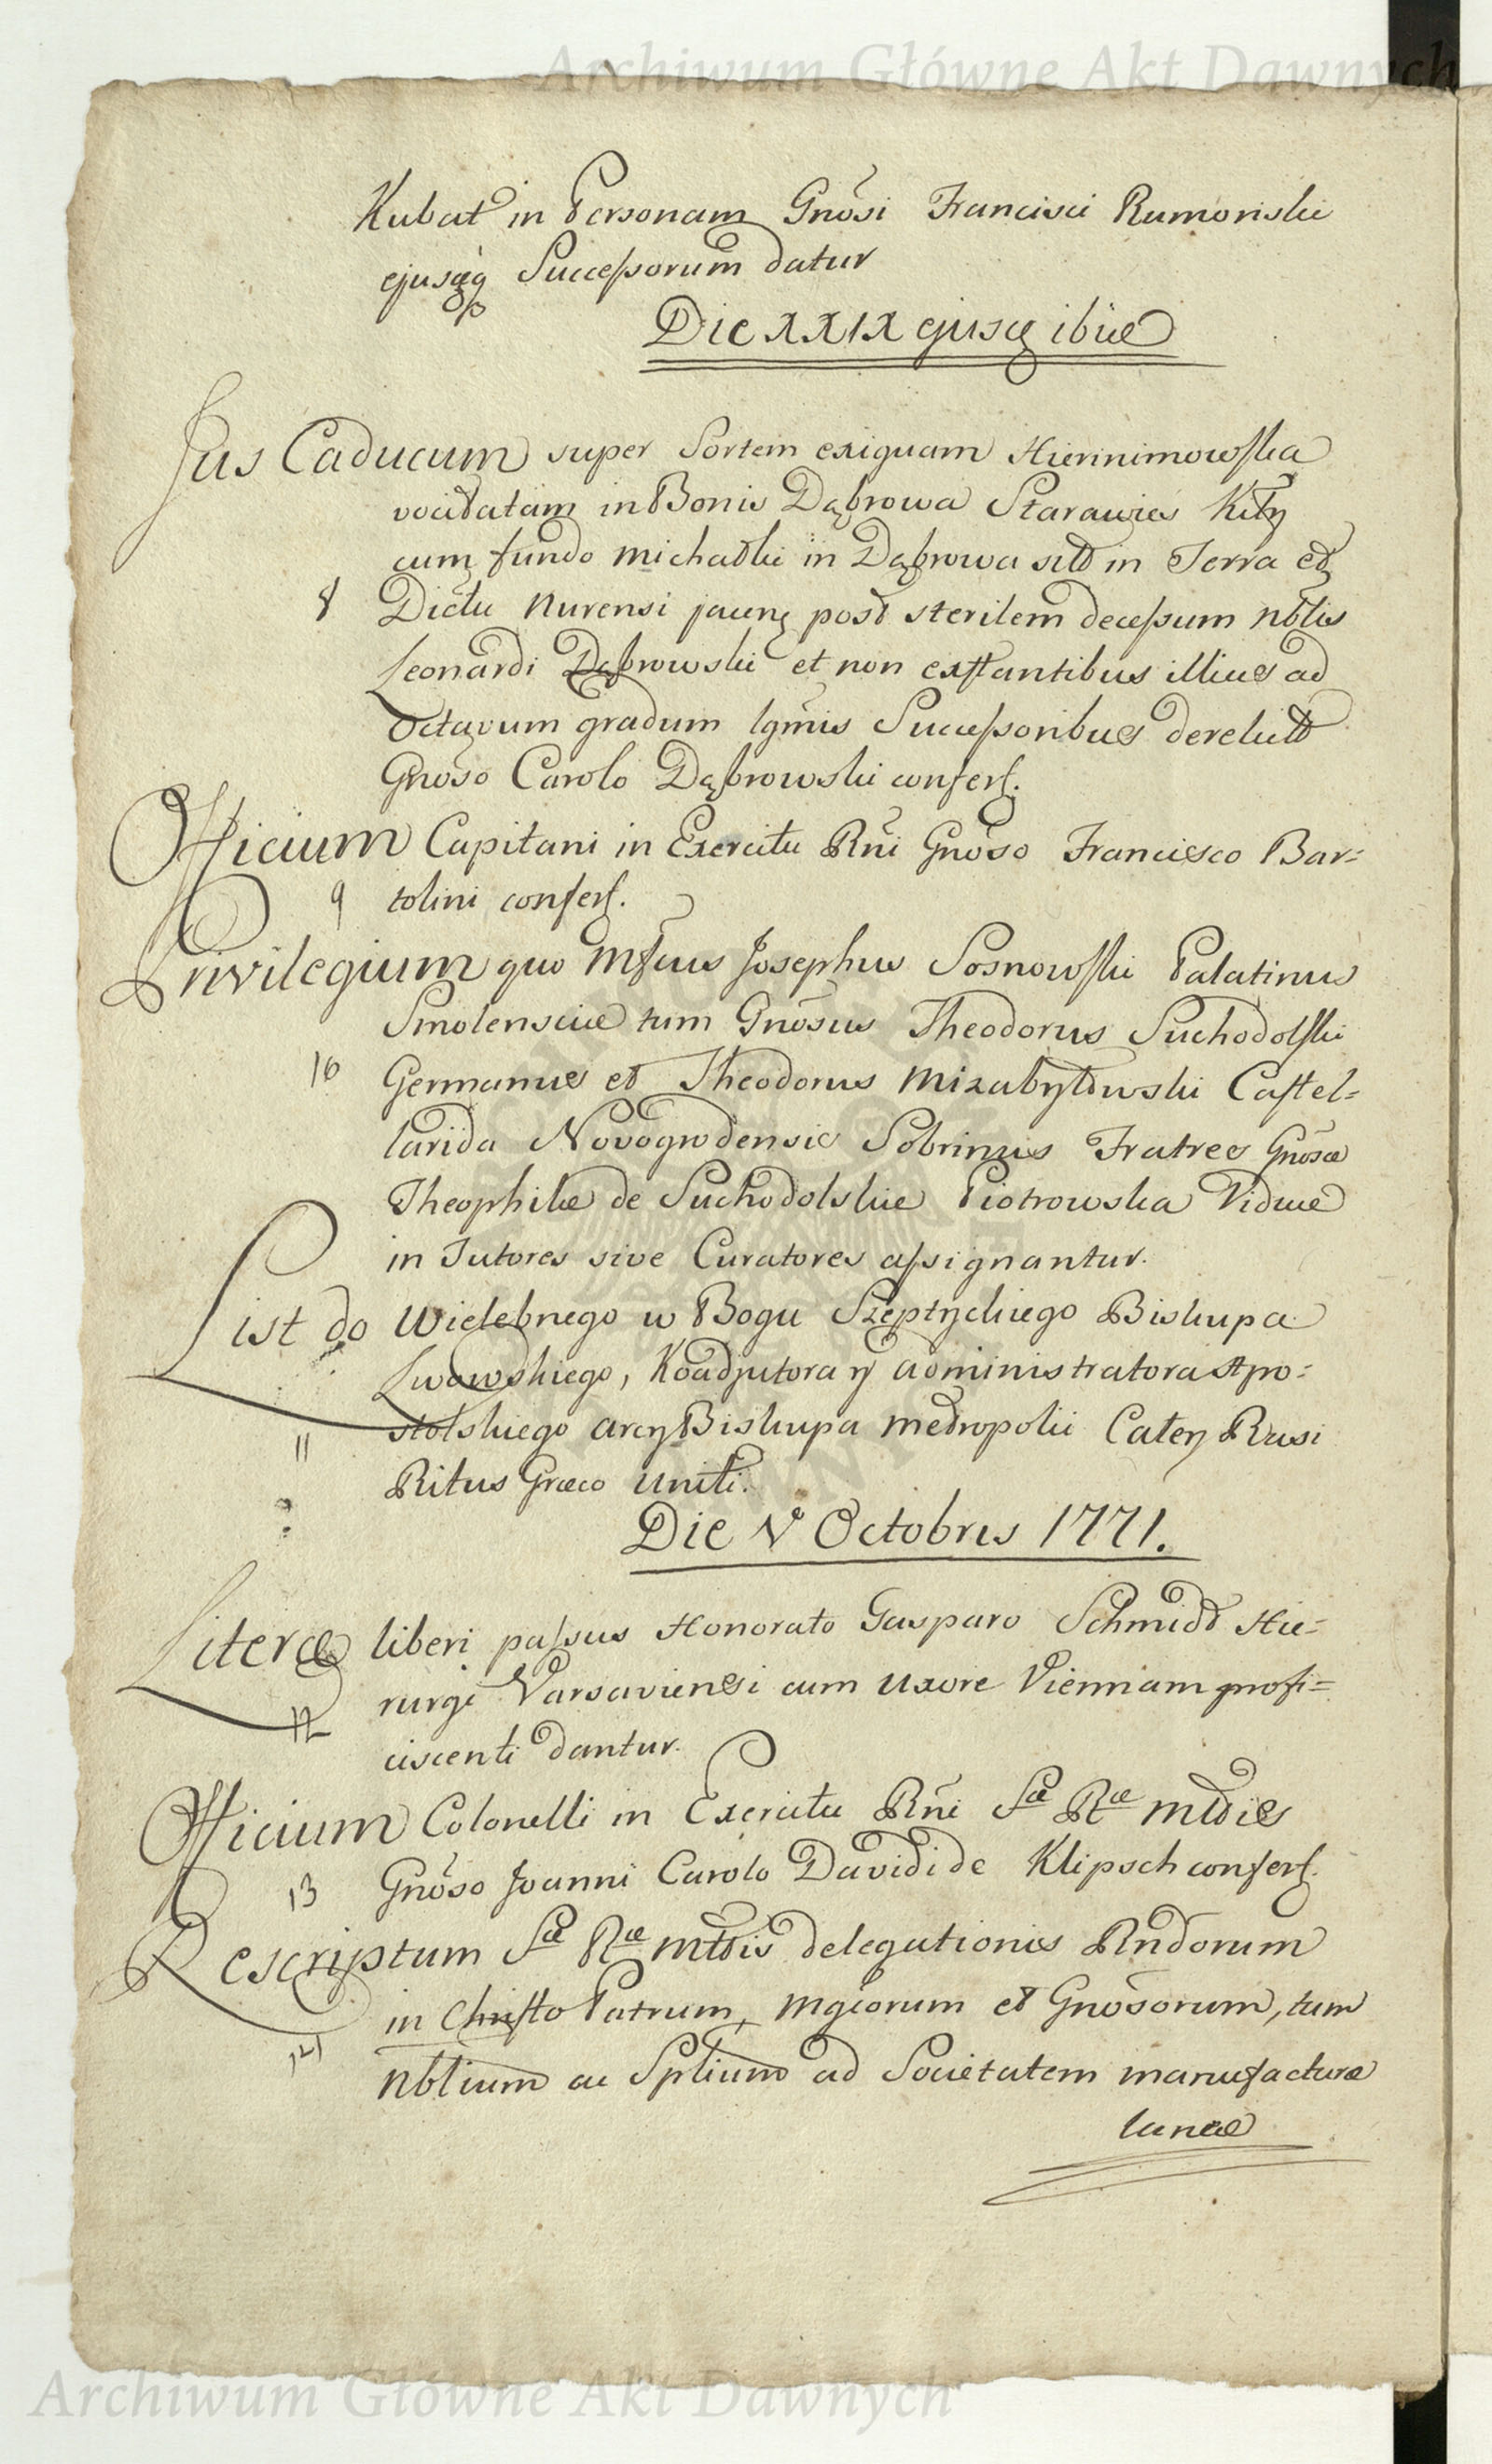 Archiwum Główne Akt Dawnych
Kubat in Personam Gnosi Francisci Rumonski
ejusqq Successorum datur
Die XXIX ejusq ibiē
Jus Caducum super Sortem exiguam Hierinimowska
vocitatam in Bonis Dąbrowa Starawieś
cum fundo michałki in Dąbrowa sitt in Terra et
8 Dictu Nurensi jacen post sterilem decessum nblis
Leonardi Dąbrowski et non exstantibus illius ad
Octavum gradum lgmis Successoribus derelict
Gnoso Carolo Dąbrowski confert.
Officium Capitani in Exercitu Rni Gnoso Francisco Bar=
9 tolini confert.
Privilegium quo Mfcus Josephus Sosnowski Palatinus
Smolensciae tum Gnosus Theodorus Suchodolski
10 Germanus et Theodorus Mizabytowski Castel=
lanida Novogrodensis Sobrinus Fratres Gnosae
Theophilae de Suchodolskie Piotrowska Viduae
in Tutores sive Curatores assignantur.
List do Wielebnego w Bogu Szeptyckiego Biskupa
Lwowskiego, Koadjutora y administratora Apo=
11 stolskiego arcyBiskupa metropolii Całey Rusi
Ritus Graeco uniti.
Die V Octobris 1771.
Literae liberi passus Honorato Gasparo Schmidt Hie=
12 rurgi Varsaviensi cum uxore Viennam profi=
ciscenti dantur.
Officium Colonelli in Exercitu Rni Sae Rae mttis
13 Gnoso Joanni Carolo Davidi de Klipsch confert.
Rescriptum Sae Rae mttis delegationis Rndorum
in Christo Patrum, Mgcorum et Gnosorum, tum
14 nblium ac Splium ad Societatem manufacturae
lanae
Archiwum Główne Akt Dawnych